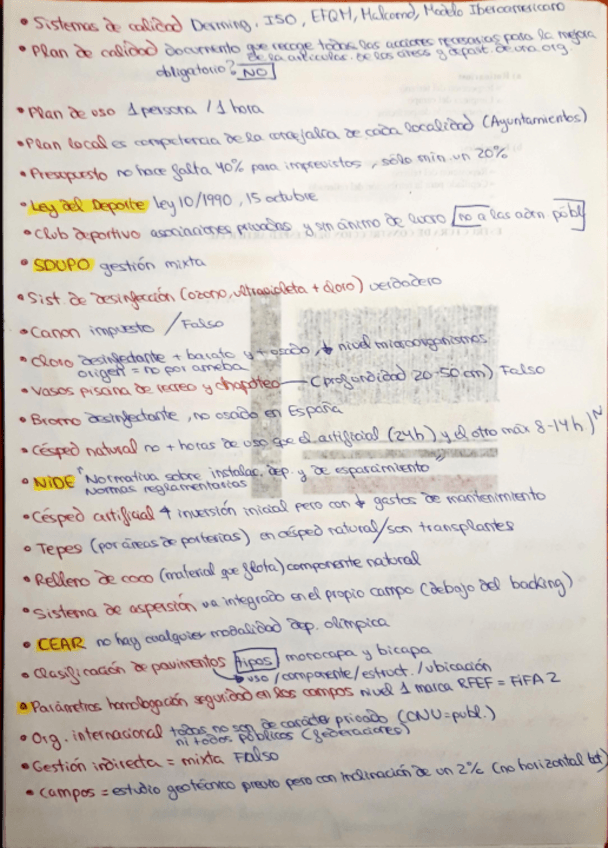 • Sistemas de calidad Derming, ISO, EFQM, Malcornd, Modelo Iberoamericano
• Plan de calidad documento que recoge todas las acciones necesarias para la mejora
de la de las áreas y depart. de una org
obligatorio? NO
• Plan de uso 1 persona / 1 hora
• Plan local es competencia de la concejalía de cada localidad (Ayuntamientos)
• Presupuesto no hace falta 40% para imprevistos, sólo min. un 20%
• Ley del Deporte ley 10/1990, 15 octubre
• Club deportivo asociaciones privadas y sin ánimo de lucro no a las adm. públ
• SDUPO gestión mixta
• Sist de desinfección (ozono, ultravioleta + cloro) verdadero
• Canon impuesto / Falso
• Cloro desinfectante + barato y + usado, ↓ nivel microorganismos
origen = no por ameba
• Vasos piscina de recreo y chapoteo — (profundidad 20-50 cm) Falso
• Bromo desinfectante, no usado en España
• Césped natural no + horas de uso que el artificial (24h) y el otro máx 8-14h) N
• NIDE "Normativa sobre instalac. dep. y de esparcimiento"
Normas reglamentarias
• Césped artificial ↑ inversión inicial pero con ↓ gastos de mantenimiento
• Tepes (por áreas de porterías) en césped natural/son transplantes
• Relleno de coco (material que flota) componente natural
• Sistema de aspersión va integrado en el propio campo (debajo del backing)
• CEAR no hay cualquier modalidad dep. olímpica
• Clasificación de pavimentos tipos monocapa y bicapa
uso / componente / estruct. / ubicación
• Parámetros homologación seguridad en los campos nivel 1 marca RFEF = FIFA 2
• Org. internacional todas no son de carácter privado (CNU=publ.)
ni todos públicos (federaciones)
• Gestión indirecta = mixta Falso
• Campos = estudio geotécnico previo pero con inclinación de un 2% (no horizontal tot)